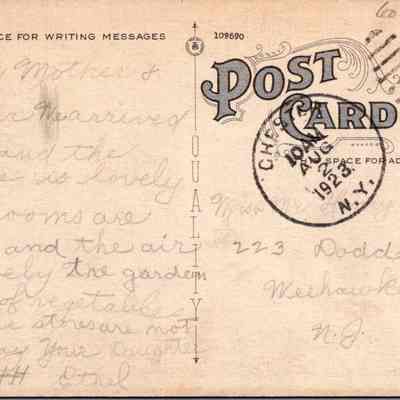 CE FOR WRITING MESSAGES
109690
POST
CARD
SPACE FOR AD
QUALITY
CHESTER
10 AM
AUG
2
1923
N.Y.
Mother &
we arrived
and the
e is lovely
rooms are
and the air
ely the garden
of vegetables
e stores are not
ay Your Daughter
Ethel
223 Dodd
Weehawke
N.J.
60